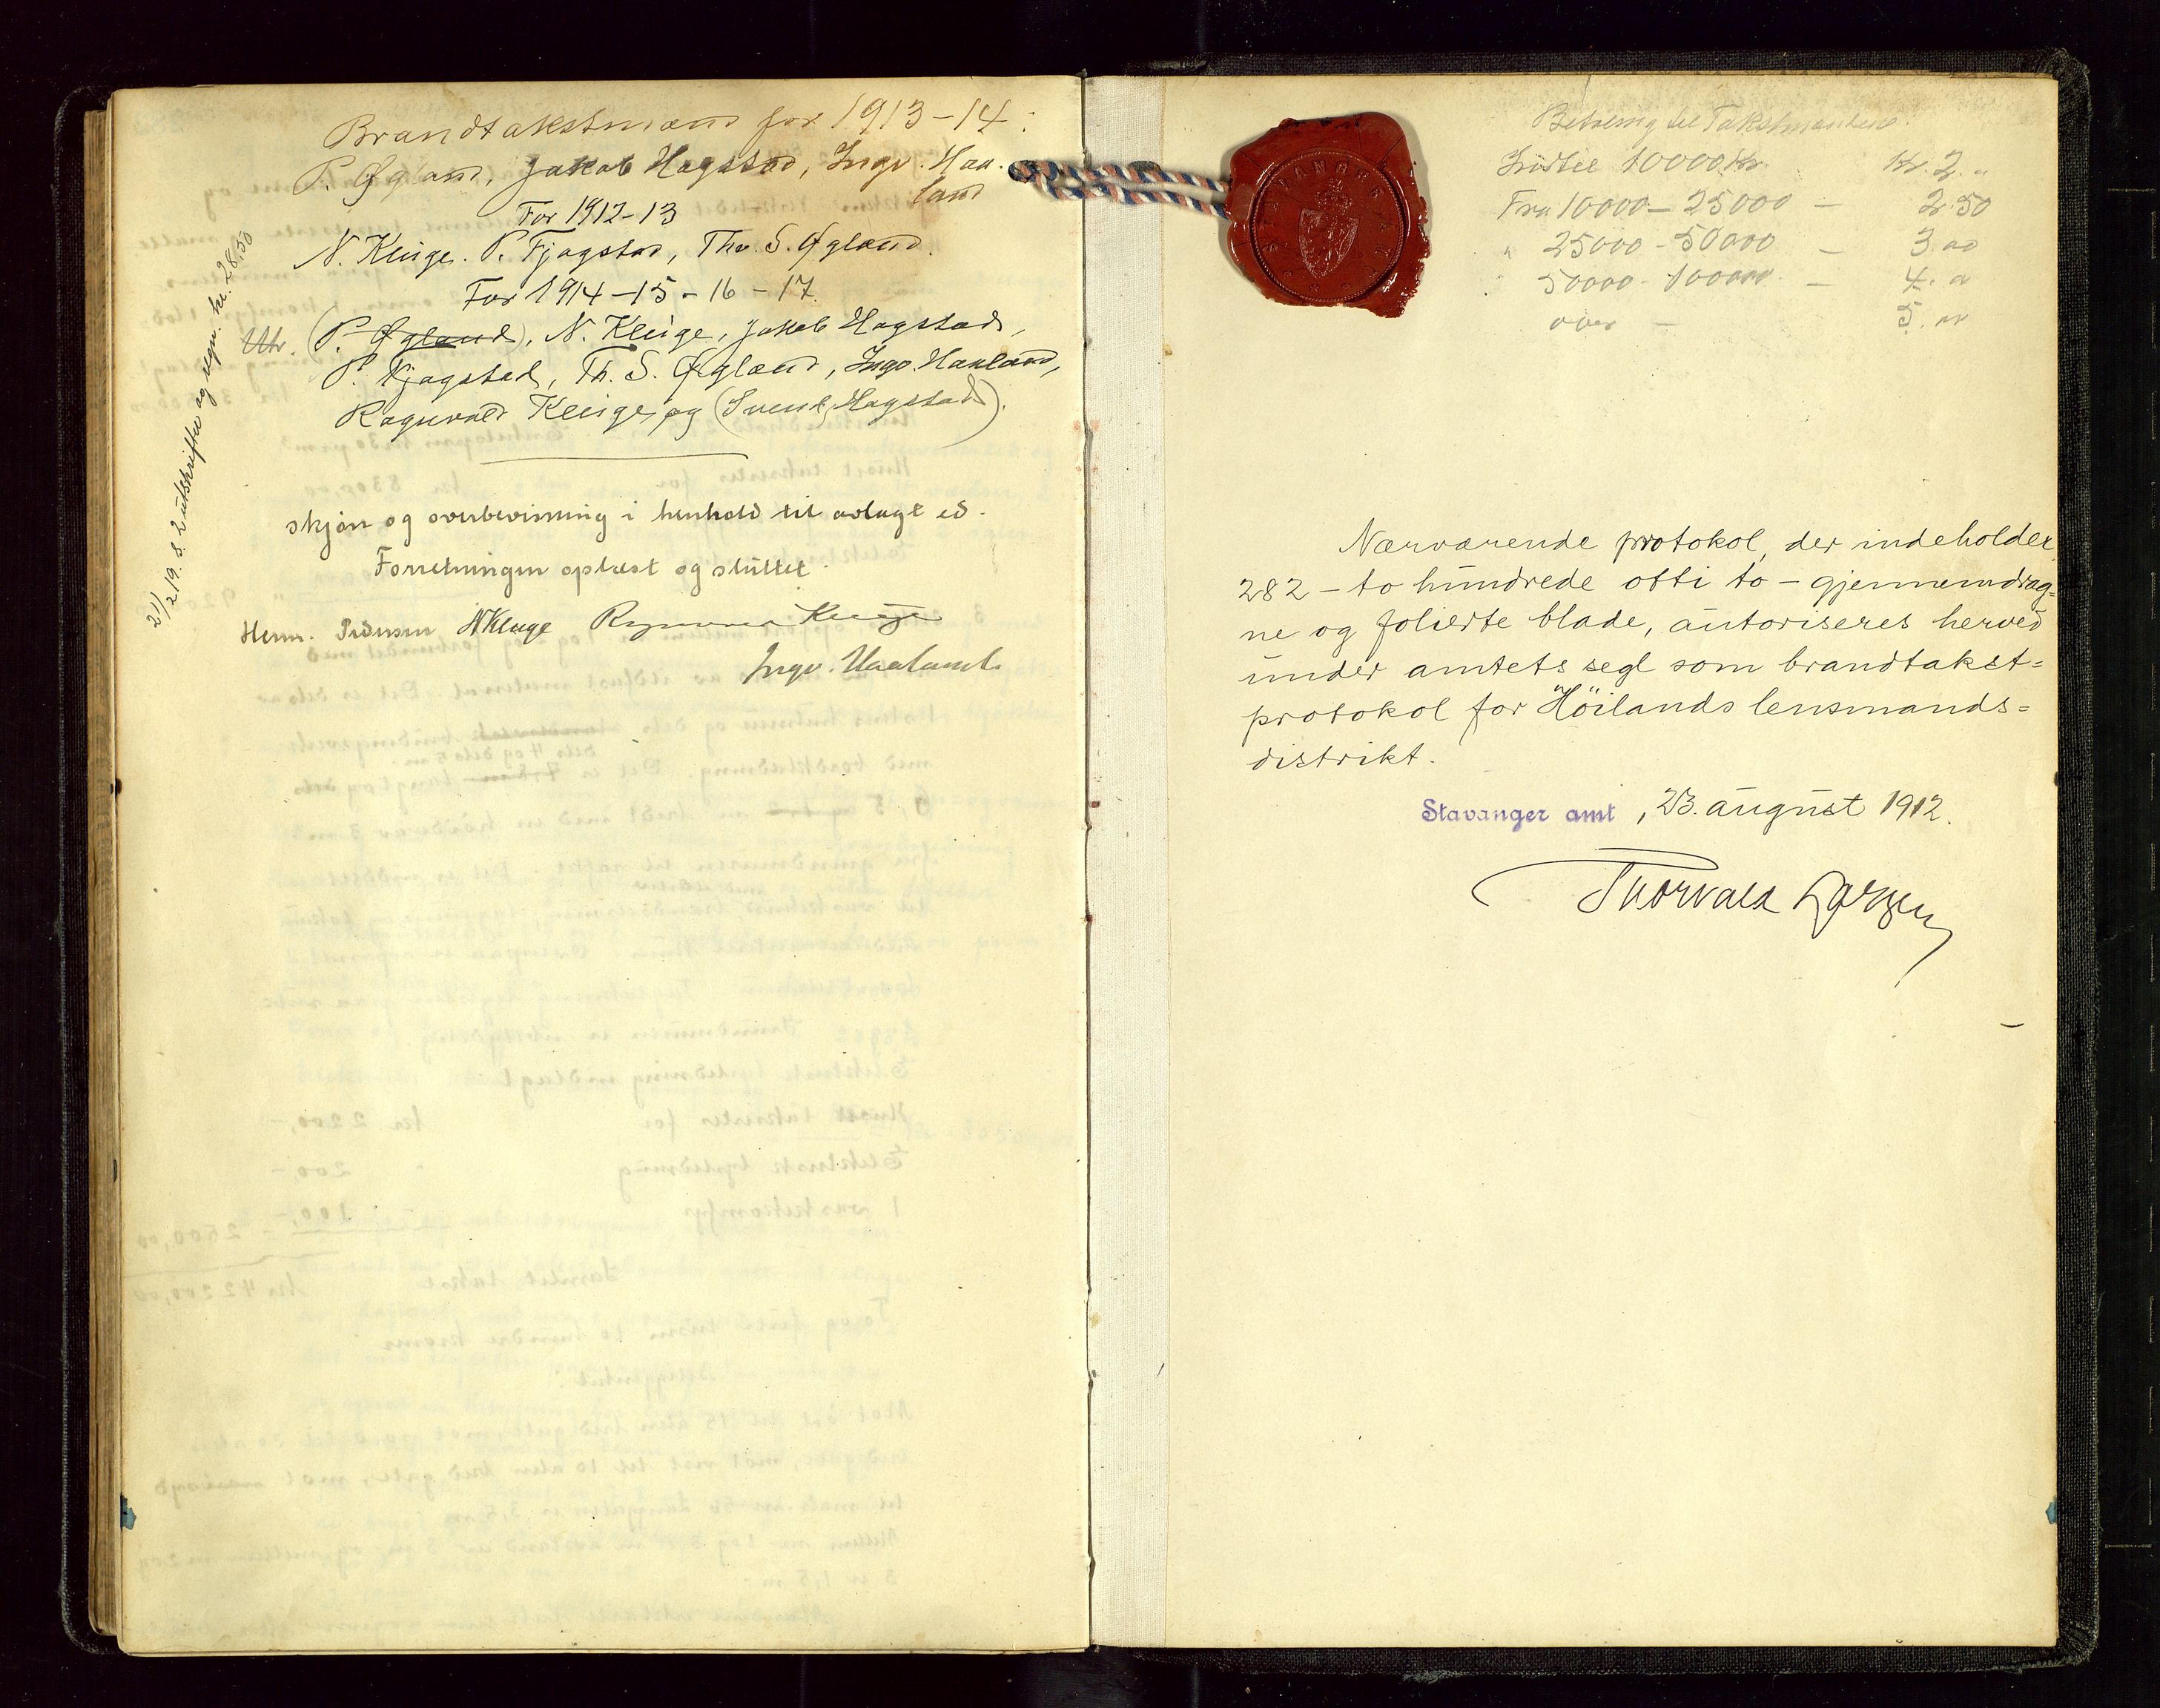 Brandtakstmænd for 1913-14:
P. Øgland, Jakob Hagstad, Ingv. Haa-
land
For 1912-13
N. Kluge. P. Fjogstad, Thv. S. Øgland.
For 1914-15-16-17.
(P. Øgland), N. Kluge, Jakob Hogstad,
P. Fjogstad, Th. S. Øgland, Ingv. Haaland,
Ragnvald Kluge, og (Svend Hogstad).
skjøn og overbevisning i henhold til avlagt ed.
Forretningen oplæst og sluttet.
Herm. Pedersen NKluge Ragnvald Kluge
Ingv. Haaland.
21/2 19. s. 2 utskrifter og regn. kr. 28,50
Betaling til Takstmændene.
Indtil 10000 Kr. Kr. 2. "
Fra 10000 - 25000 - 2.50
" 25000 - 50000 - 3.00
" 50000 - 100000 - 4.
over - 5.
STAVANGER AMT
Nærværende protokol, der indeholder
282 - to hundrede otti to - gjennemdrag=
ne og folierte blade, autoriseres herved
under amtets segl som brandtakst=
protokol for "Höilands lensmands=
distrikt.
Stavanger amt, 23. august 1912.
Thorvald Larsen